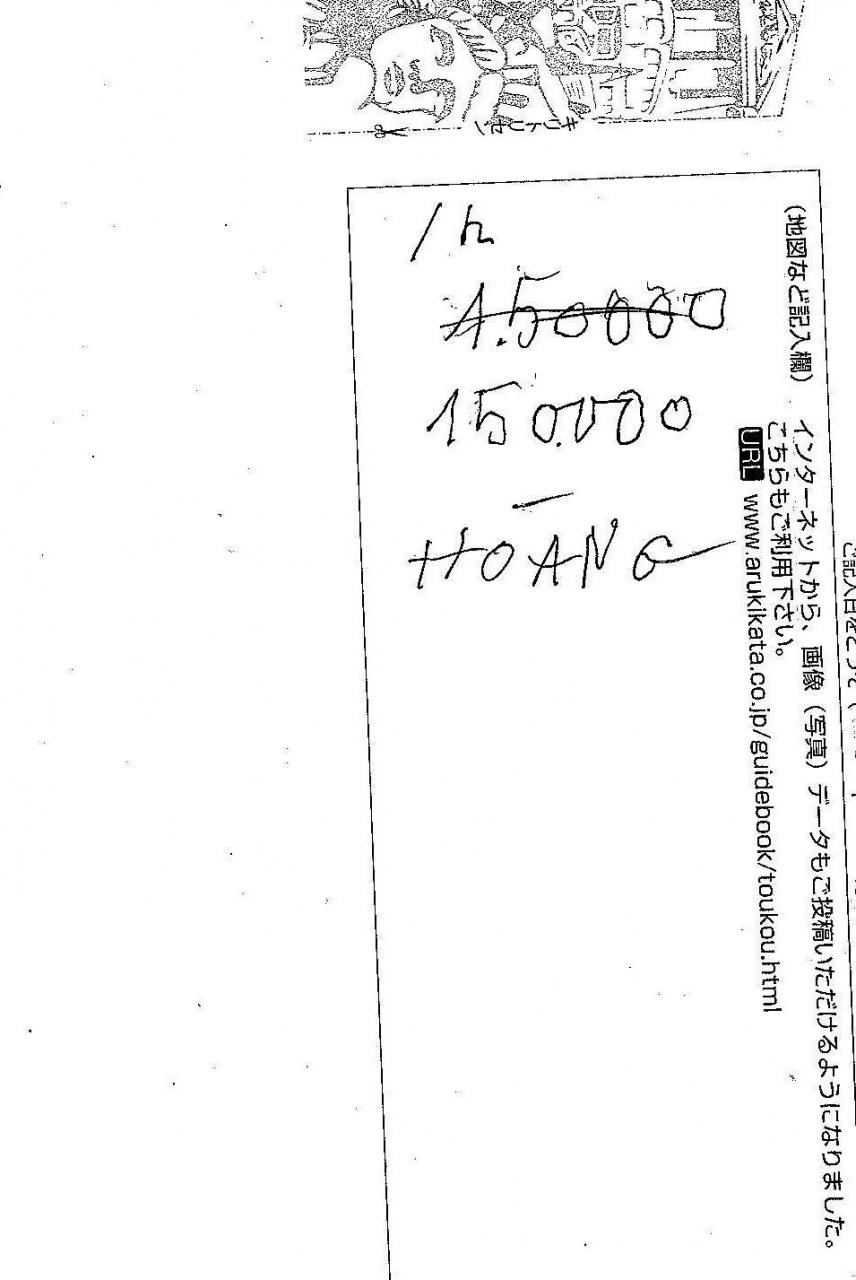 キリトリセン
(地図など記入欄) インターネットから、画像(写真)データもご投稿いただけるようになりました。
こちらもご利用下さい。
URL www.arukikata.co.jp/guidebook/toukou.html
1h
1.50000
150.000
HOANG